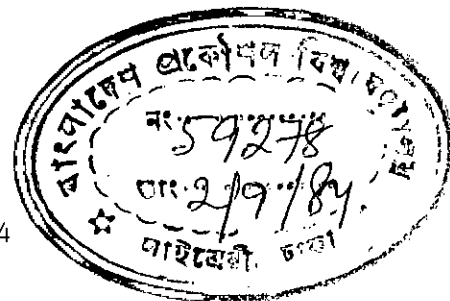 বাংলাদেশ প্রকৌশল বিশ্ববিদ্যালয়
নং 59278
তাং 2/9/84.
লাইব্রেরী, ঢাকা
4